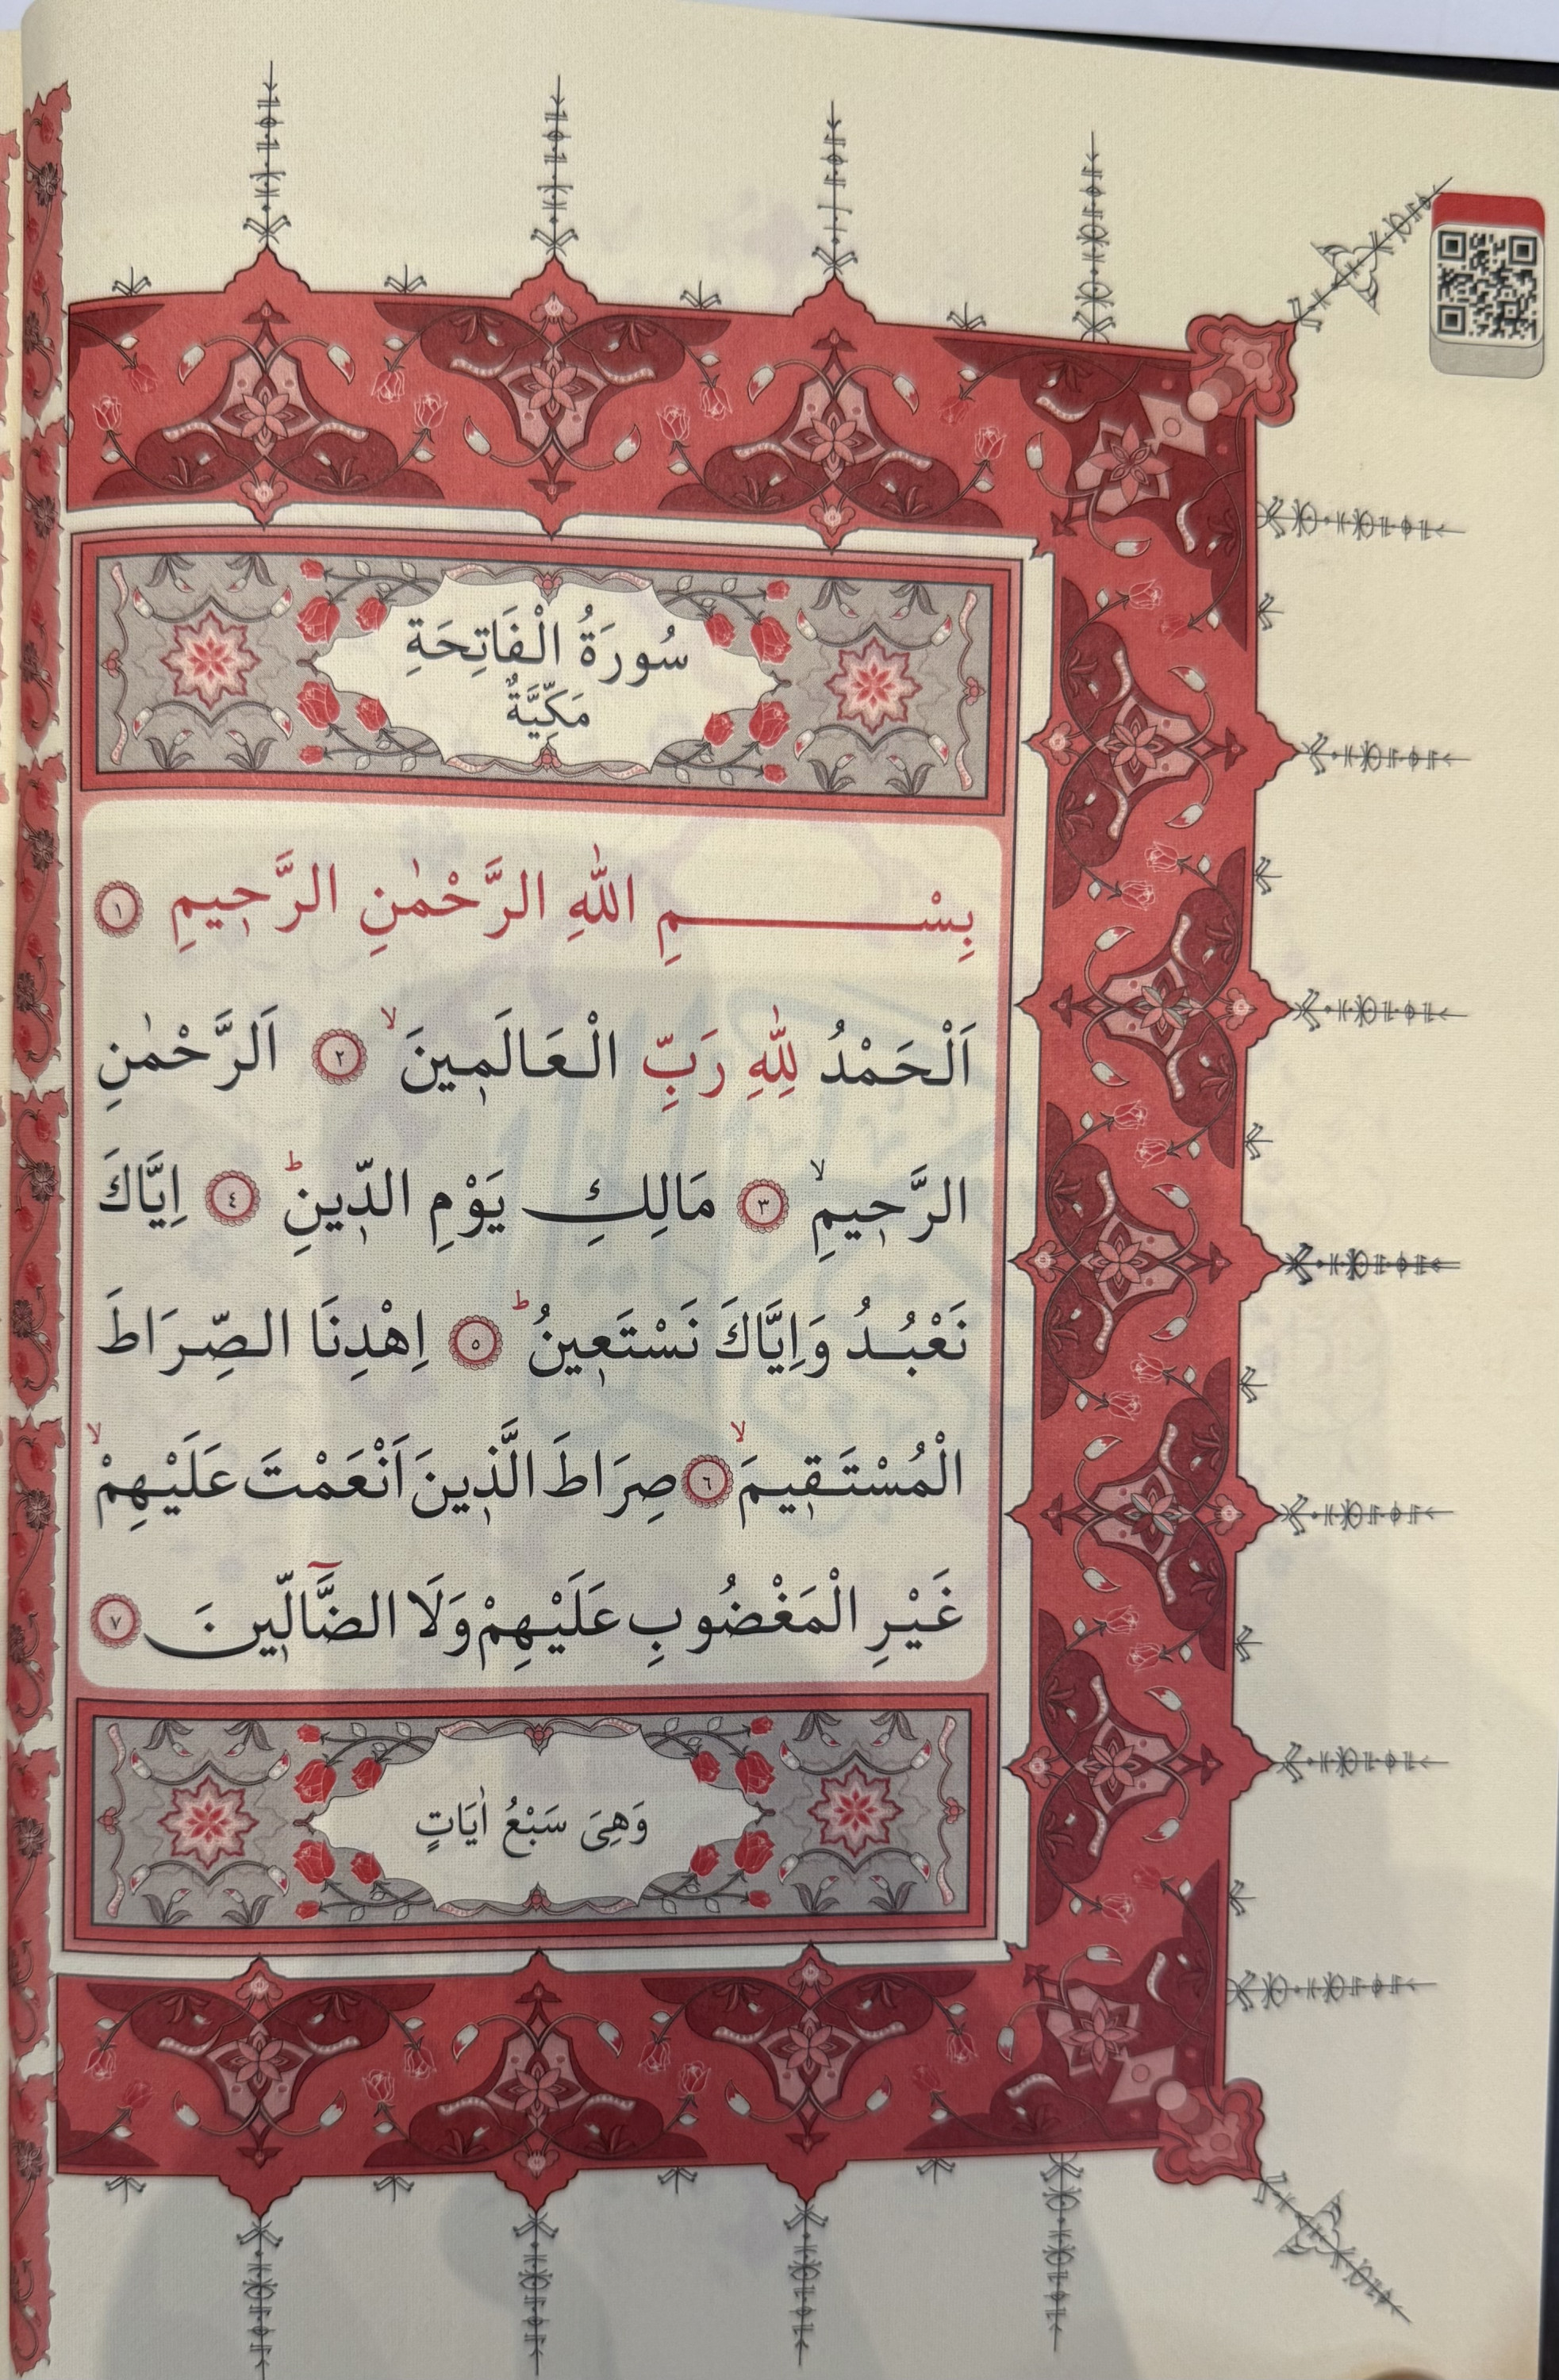 سُورَةُ الْفَاتِحَةِ
مَكِّيَّةٌ
بِسْــــــــمِ اللّٰهِ الرَّحْمٰنِ الرَّحٖيمِ ﴿١﴾
اَلْحَمْدُ لِلّٰهِ رَبِّ الْعَالَمٖينَۙ ﴿٢﴾ اَلرَّحْمٰنِ
الرَّحٖيمِۙ ﴿٣﴾ مَالِكِ يَوْمِ الدّٖينِؕ ﴿٤﴾ اِيَّاكَ
نَعْبُدُ وَاِيَّاكَ نَسْتَعٖينُؕ ﴿٥﴾ اِهْدِنَا الصِّرَاطَ
الْمُسْتَقٖيمَۙ ﴿٦﴾ صِرَاطَ الَّذٖينَ اَنْعَمْتَ عَلَيْهِمْۙ
غَيْرِ الْمَغْضُوبِ عَلَيْهِمْ وَلَا الضَّٓالّٖينَ ﴿٧﴾
وَهِىَ سَبْعُ اٰيَاتٍ